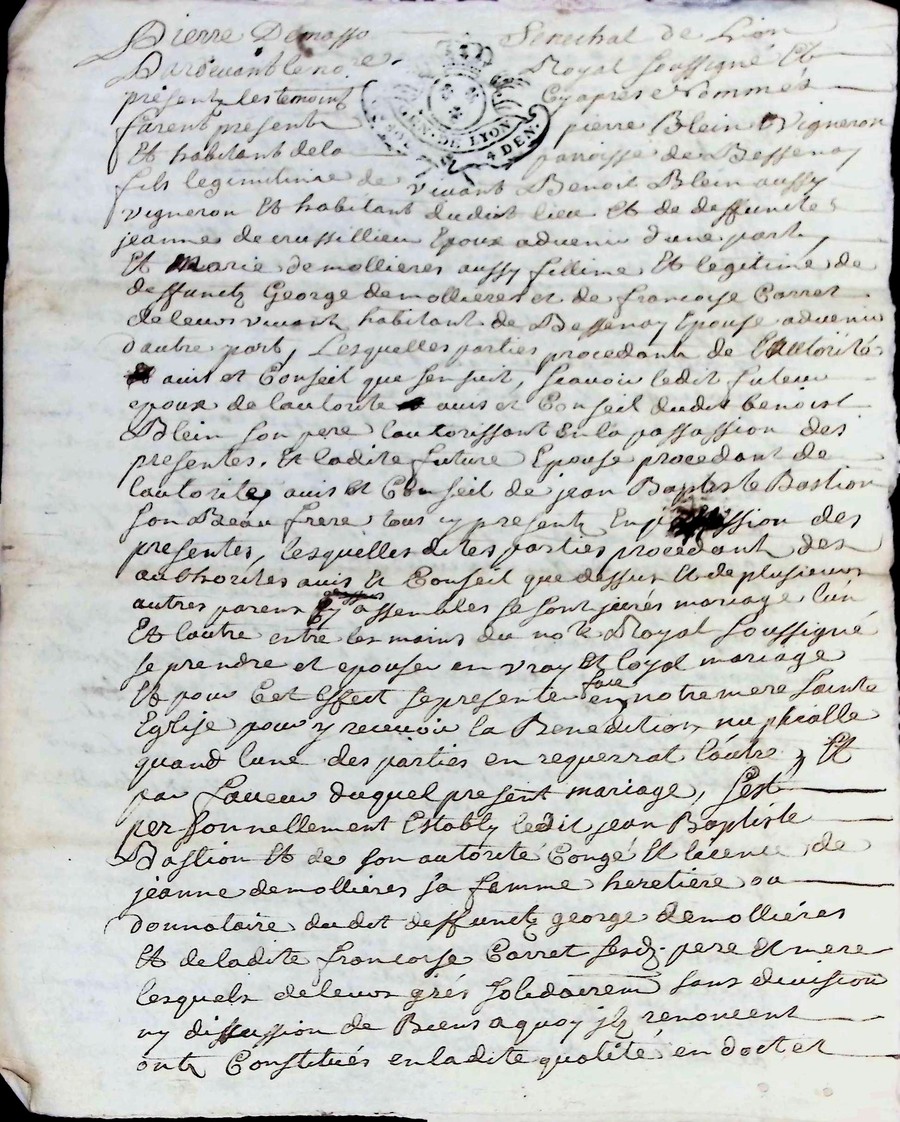 Pierre Demasso Senechal de Lion
Pardevant le nore Royal soussigné Et
présentz les temoins Cy apres Nommés
furent presents pierre Blein Vigneron
Et habitant de la paroisse de Bessenay
GEN. DE LYON
4 DEN.
fils legimitime de vivant Benoit Blein aussy
vigneron Et habitant dudit lieu Et de deffunctes
jeanne de crussillieu Epoux advenir d'une party
Et Marie demollieres aussy fillime Et legitime de
deffunctz George demollieres et de francoise Carret
de leurs vivant habitant de Bessenay Epouse advenir
d'autre part, Lesquelles parties procedant de l'Autorité
avis et Conseil que sen suit, scavoir ledit futeur
epoux de lautorité avis et Conseil dudit benoist
Blein son pere lautorissant En la passassion des
presentes. Et ladite future Epouse procedant de
lautorité avis et Conseil de jean Baptiste Bastion
son Beau frere tous cy presentz En ssion des
presentes, lesquelles dites parties procedant des
authorites avis Et Conseil que dessus Et de plusieurs
autres parens assembles se sont jurés mariage lun
Et lautre entre les mains du nore Royal soussigné
se prendre et epouser en vray Et loyal mariage
Et pour Cet Effect se presente face en notre mere sainte
Eglise pour y recevoir la Benediction nuphialle
quand lune des parties en requerrat lautre, Et
par faveur duquel present mariage, sest
personnellement Estably ledit jean Baptiste
Bastion Et de son autorité Congé Et licence de
jeanne demollieres sa femme heretiere ou
donnataire dudit deffunctz george demolliéres
Et de ladite francoise Carret sesd. pere Et mere
lesquels de leurs grés solidairemt sans division
ny discussion de Biens a quoy ilz renoncent
ont Constitués en ladite qualité en doct et